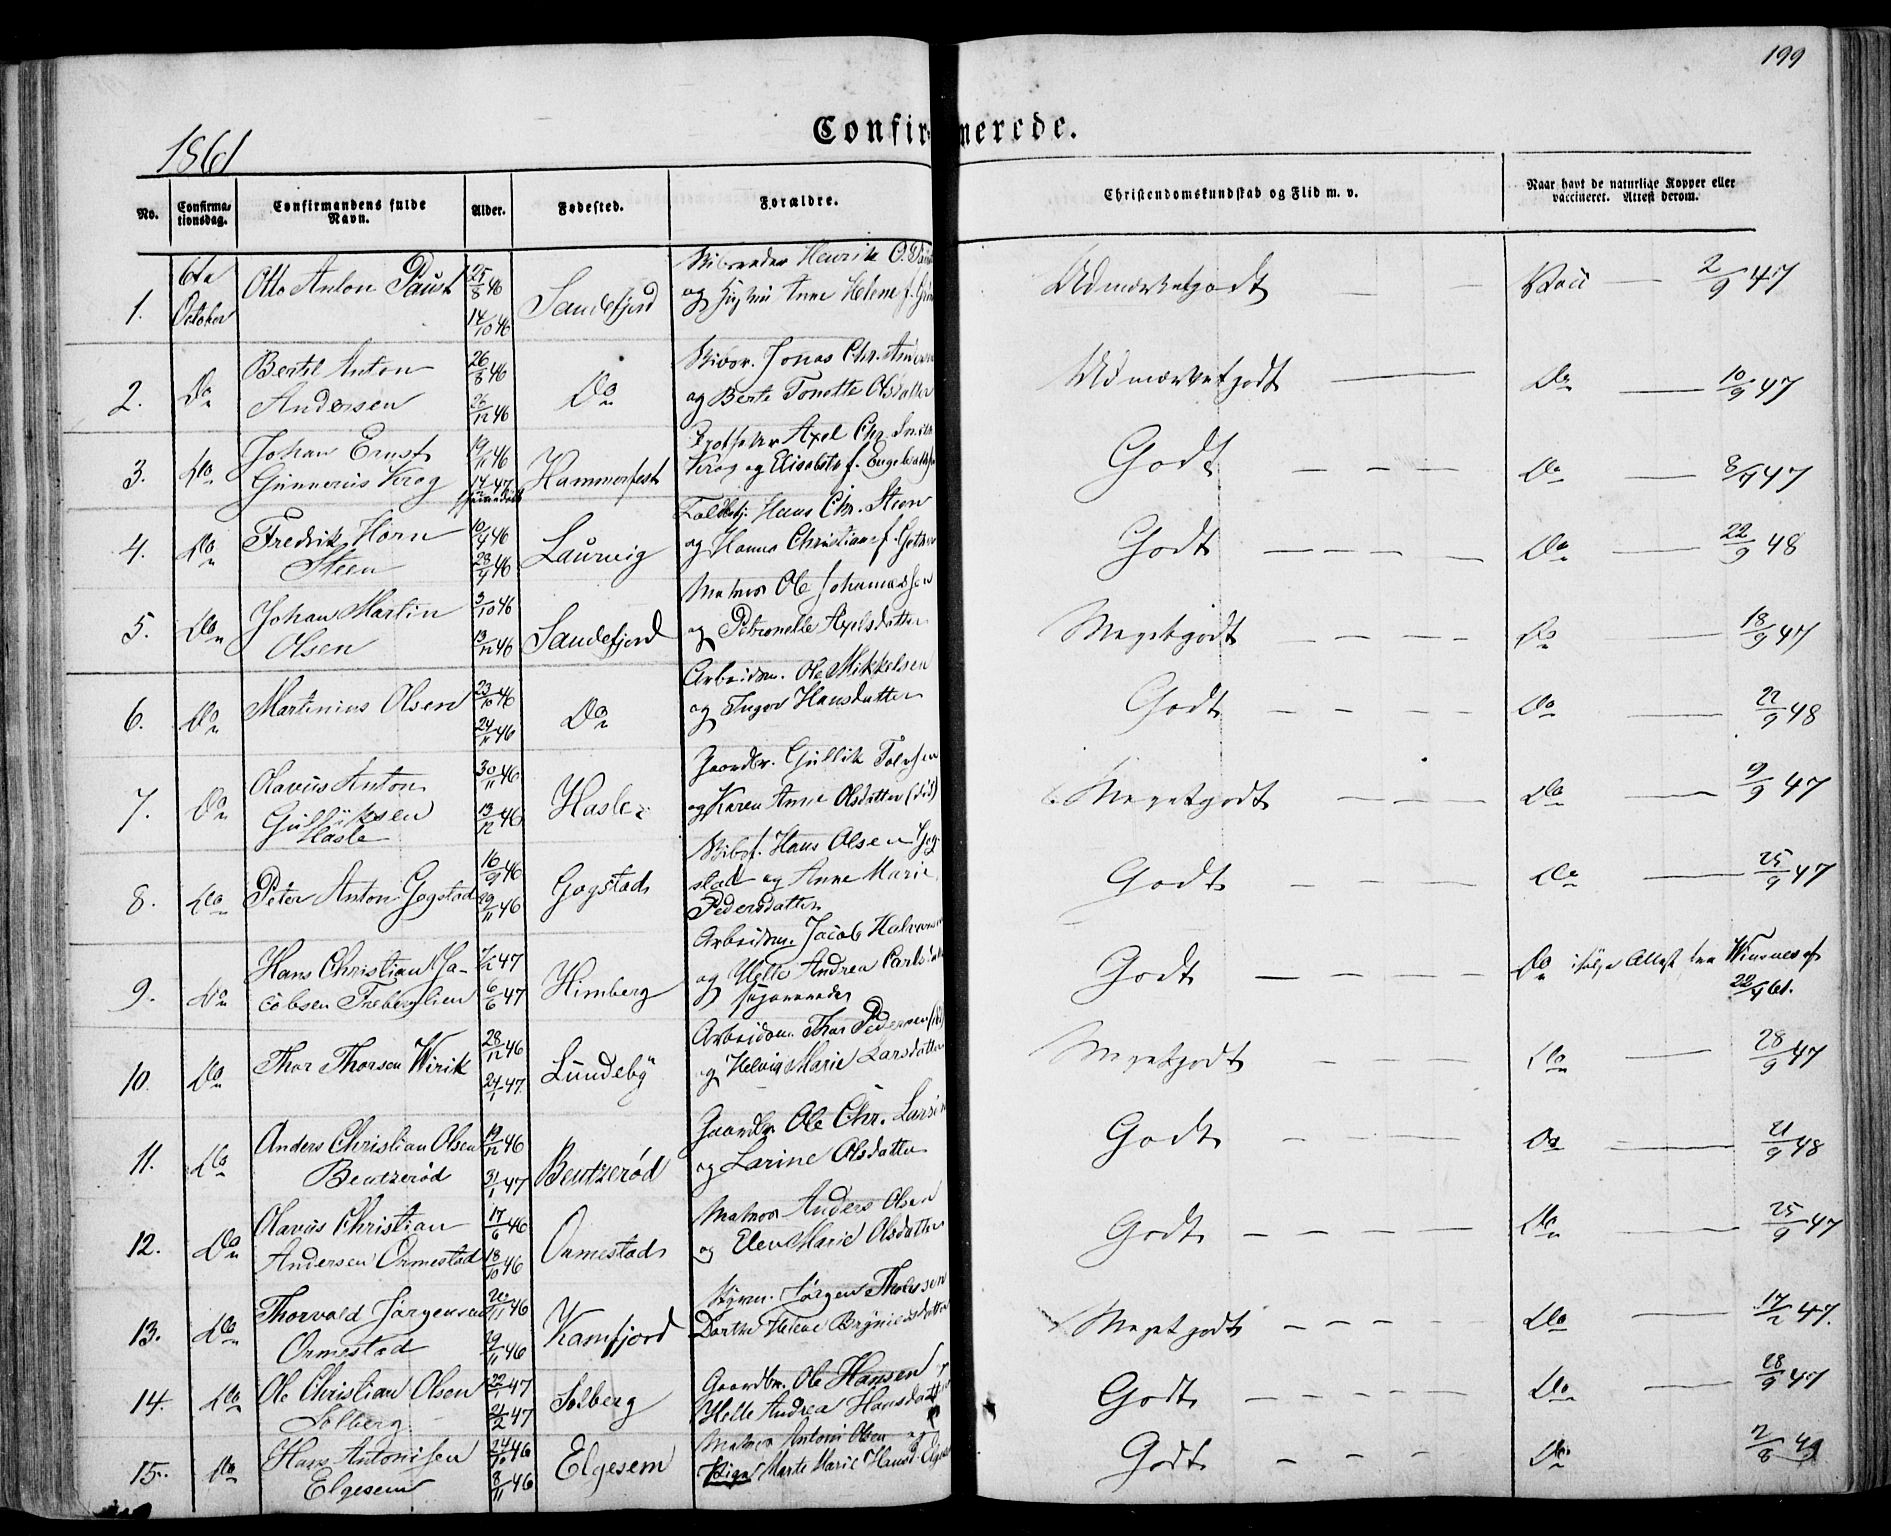 199
Confirmerede.
1861
No. Confirmationsdag. Confirmandens fulde Navn. Alder. Fødested. Forældre. Christendomskundskab og Flid m. v. Naar havt de naturlige Kopper eller vaccineret. Attest derom.
1. 6te October Otto Anton Paust 25/8 46 14/10 46 Sandefjord Henrik O. og Anne Helene f. Udmærketgodt Vacc 2/9 47
2. Do Bertel Anton Andersen 26/8 46 26/12 46 Do Jonas Chr. og Berte Tonette Olsdatter Udmærketgodt Do 10/9 47
3. Do Johan Ernst Gunnerius Krog 19/11 46 Hammerfest Axel Chr. Krog og Elisabeth f. Godt Do 47
4. Do Fredrik Horn Steen 10/4 46 28/9 46 Laurvig Hans Chr. Steen og Hanna Christiane f. Godt Do 22/9 48
5. Do Johan Martin Olsen 3/10 46 13/12 46 Sandefjord Matros Ole Johannessen og Petronelle Axelsdatter Megetgodt Do 18/9 47
6. Do Martinius Olsen 23/10 46 24/11 46 Do Arbeidsm. Ole Mikkelsen og Inger Hansdatter Godt Do 22/9 48
7. Do Olavus Anton Gulliksen Hasle 30/11 46 13/12 46 Hasle Gaardbr. Gullik og Karen Anne Olsdatter (død) Megetgodt Do 9/9 47
8. Do Peter Anton Gogstad 16/9 46 29/11 46 Gogstad Hans Olsen Gogstad og Anne Marie Pedersdatter Godt Do 25/9 47
9. Do Hans Christian Jacobsen 47 6/6 47 Himberg Arbeidsm. Jacob og Helle Andrea Godt Do ifølge Attest fra 61.
10. Do Thor Thorsen Wirik 28/12 46 24/1 47 Lundeby Arbeidsm. Thor Pedersen og Helvig Marie Larsdatter Megetgodt Do 28/9 47
11. Do Anders Christian Olsen Bentzerød 19/12 46 31/1 47 Bentzerød Gaardbr. Ole Chr. Larsen og Larine Olsdatter Godt Do 21/9 48
12. Do Olavus Christian Andersen Ormestad 17/6 46 18/10 46 Ormestad Matros Anders Olsen og Elen Marie Olsdatter Godt Do 25/9 47
13. Do Thorvald Jørgensen Ormestad 20/11 46 29/11 46 Kamfjord Jørgen Dorthe Helene Megetgodt Do 17/2 47.
14. Do Ole Christian Olsen Solberg 22/1 47 21/2 47 Solberg Gaardbr. Ole Hansen og Helle Andrea Hansdatter Godt Do 28/9 47
15. Do Hans Antonisen Elgesem 24/10 46 8/11 46 Elgesem Matros Antoni Olsen og Pige Marte Marie Hansd. Godt Do 2/8